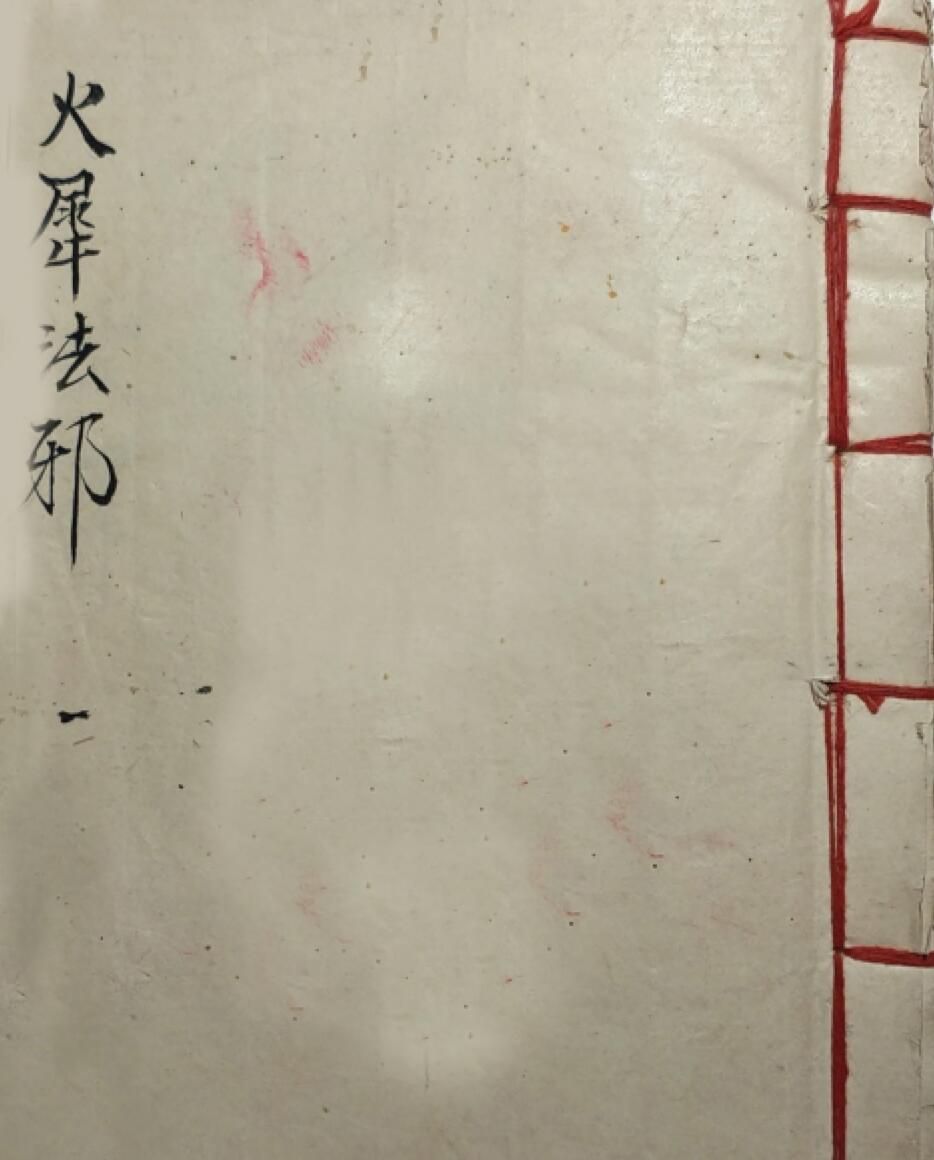 火犀法邪